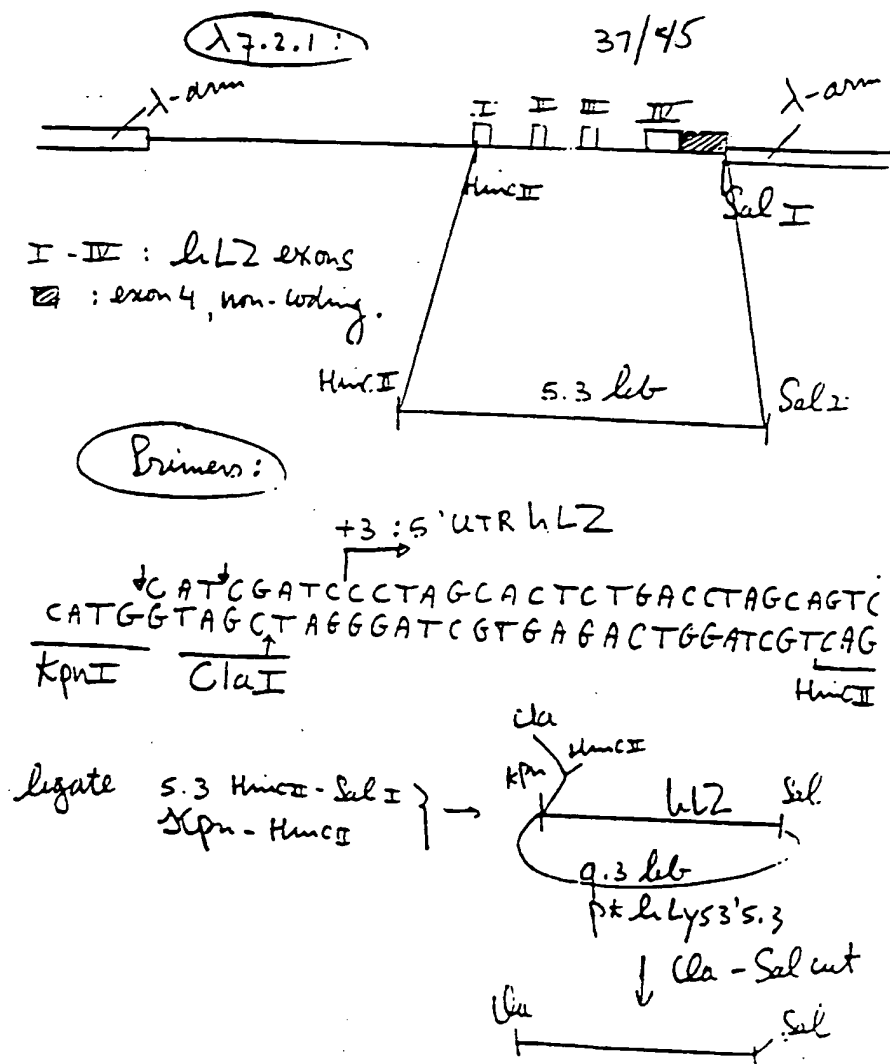 λ7.2.1 : 37/45
λ-arm I II III IV λ-arm
Hinc II Sal I
I - IV : hLZ exons
: exon 4, non-coding.
Hinc II 5.3 kb Sal I
Primers:
+3 : 5' UTR hLZ
CATCGATCCCTAGCACTCTGACCTAGCAGTC
CATGGTAGCTAGGGATCGTGAGACTGGATCGTCAG
KpnI ClaI HincII
Cla
Kpn HincII
ligate 5.3 HincII - Sal I hLZ Sal
Kpn - HincII
9.3 kb
hLys3'5.3
Cla - Sal cut
Cla Sal